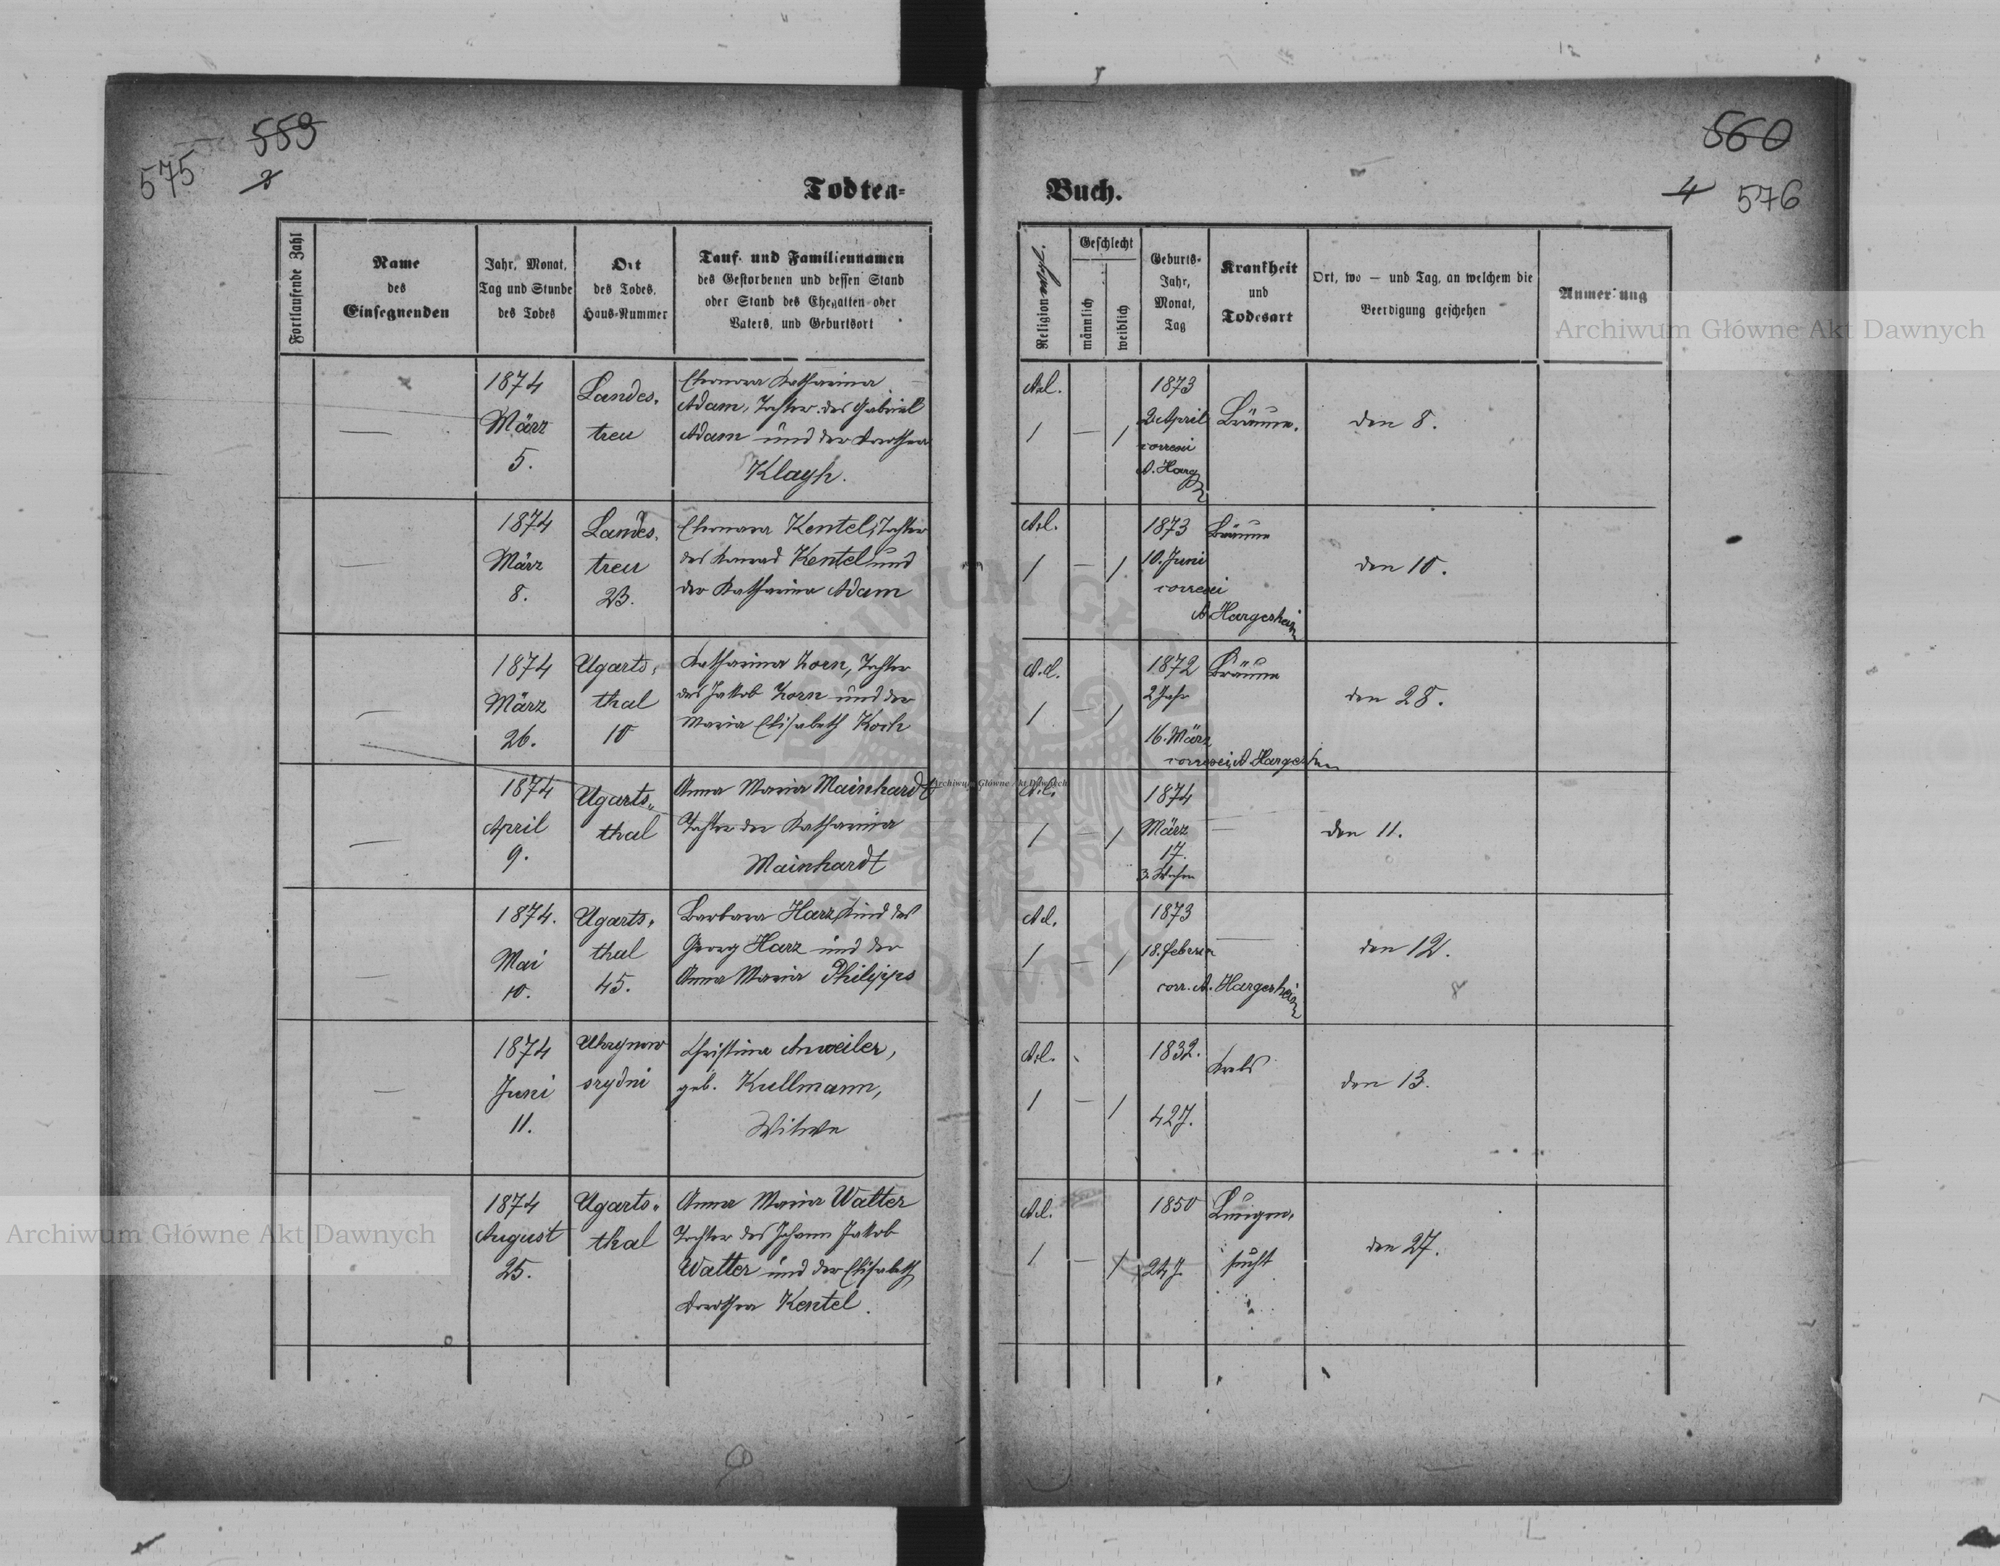 559
575
3
Todten-
Buch.
560
4
576
Fortlaufende Zahl
Name
des
Einsegnenden
Jahr, Monat,
Tag und Stunde
des Todes
Ort
des Todes,
Haus-Nummer
Tauf- und Familiennamen
des Gestorbenen und dessen Stand
oder Stand des Ehegatten oder
Vaters, und Geburtsort
Religion
Geschlecht
männlich
weiblich
Geburts-
Jahr,
Monat,
Tag
Krankheit
und
Todesart
Ort, wo — und Tag, an welchem die
Beerdigung geschehen
Anmerkung
1874
März
5.
Landes-
treu
Eleonora Katharina
Adam, Tochter des Gabriel
Adam und der Dorothea
Klayh.
A.d.
1 — 1
1873
2. April
correxi
A. Harg
Bräune.
den 8.
1874
März
8.
Landes-
treu
23.
Eleonora Kentel, Tochter
des Konrad Kentel und
der Katharina Adam
A.d.
1 — 1
1873
10. Juni
correxi
A. Hargesheim
Bräune
den 10.
1874
März
26.
Ugarts-
thal
10
Katharina Korn, Tochter
des Jakob Korn und der
Maria Elisabeth Koch
A.d.
1 — 1
1872
2 Jahr
16. März
correxi A. Hargeshm
Bräune
den 28.
1874
April
9.
Ugarts-
thal
Anna Maria Mainhardt
Tochter der Katharina
Mainhardt
A.d.
1 — 1
1874
März
17.
3 Wochen
—
den 11.
1874.
Mai
10.
Ugarts-
thal
45.
Barbara Harz, Kind des
Georg Harz und der
Anna Maria Philipps
A.d.
1 — 1
1873
18. Februar
corr. A. Hargesheim
—
den 12.
1874
Juni
11.
Uhrynow
srydni
Christina Anweiler,
geb. Kullmann,
Witwe
A.d.
1 — 1
1832.
42 J.
Krebs
den 13.
1874
August
25.
Ugarts-
thal
Anna Maria Walter
Tochter des Johann Jakob
Walter und der Elisabeth
Dorothea Kentel.
A.d.
1 — 1
1850
24 J.
Lungen-
sucht
den 27.
Archiwum Główne Akt Dawnych
Archiwum Główne Akt Dawnych
Archiwum Główne Akt Dawnych